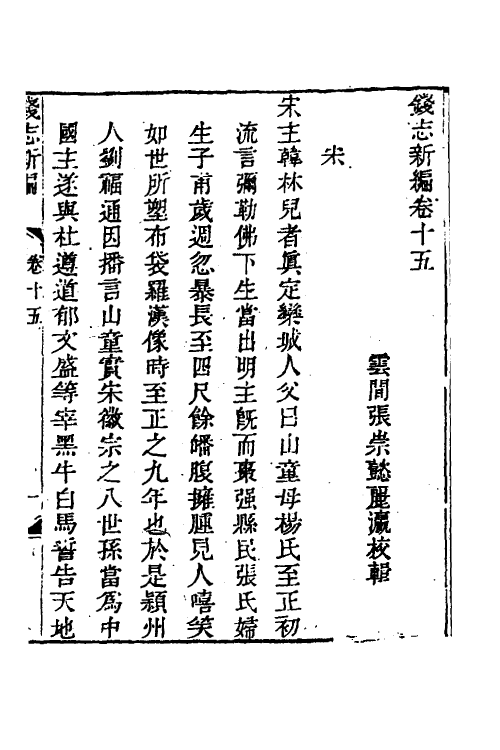 錢志新編卷十五
雲間張崇懿麗瀛校輯
宋
宋主韓林兒者眞定欒城人父曰山童母楊氏至正初
流言彌勒佛下生當出明主旣而棗强縣民張氏婦
生子甫歲週忽暴長至四尺餘皤腹擁腫見人嘻笑
如世所塑布袋羅漢像時至正之九年也於是潁州
人劉福通因播言山童實宋徽宗之八世孫當爲中
國主遂與杜遵道郁文盛等宰黑牛白馬誓告天地
錢志新編 卷十五 一